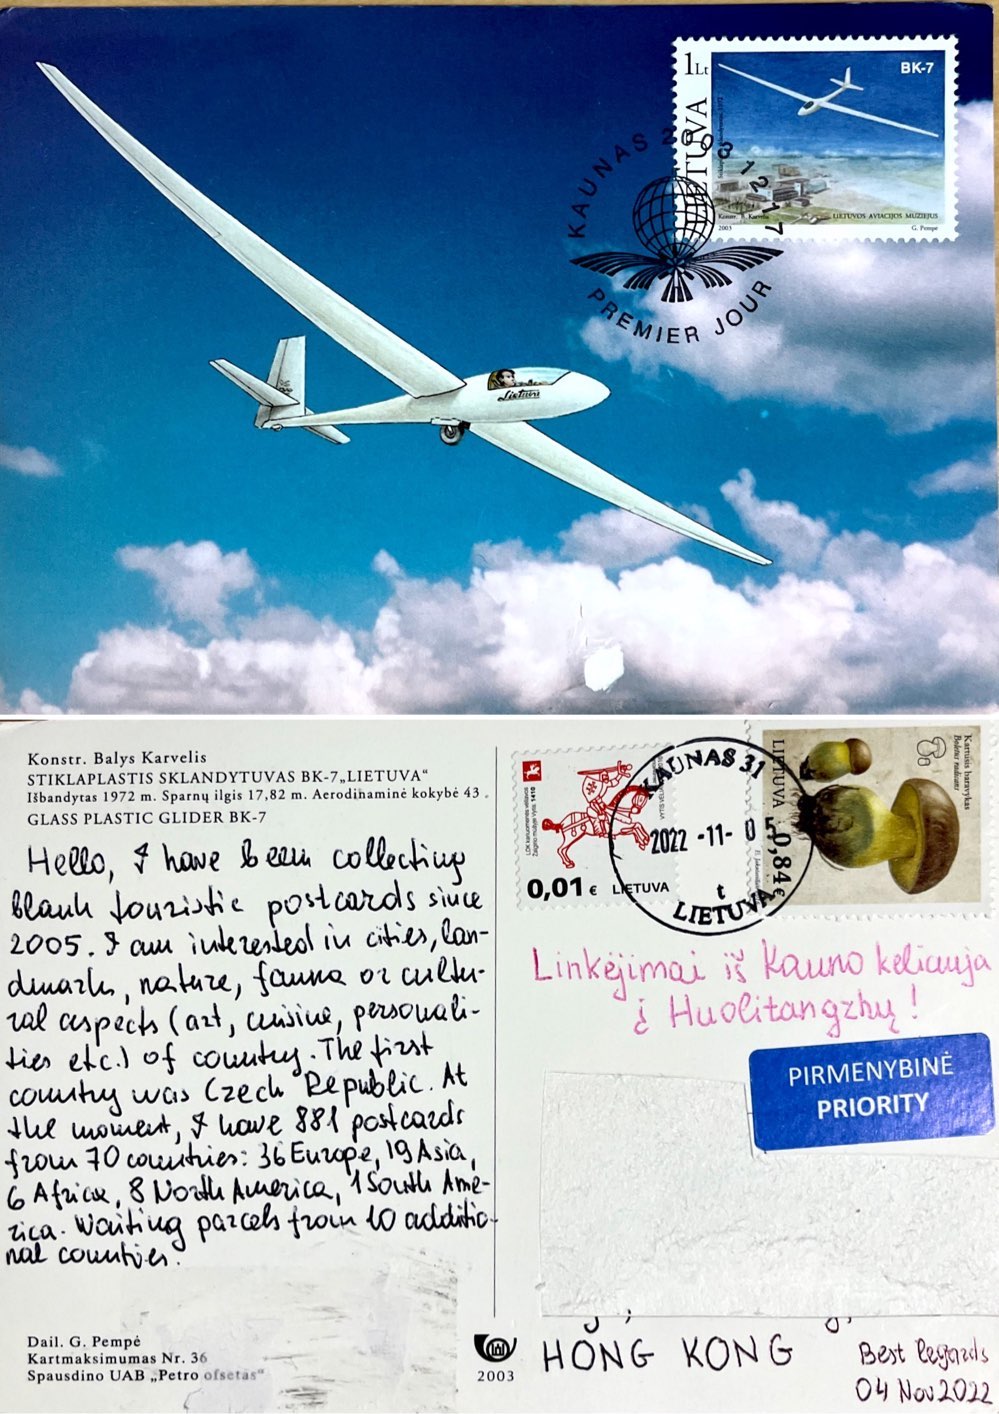 1Lt
BK-7
LIETUVA
Konstr. B. Karvelis
LIETUVOS AVIACIJOS MUZIEJUS
2003
G. Pempė
KAUNAS 2003 12 17
PREMIER JOUR
Lietuva
Konstr. Balys Karvelis
STIKLAPLASTIS SKLANDYTUVAS BK-7„LIETUVA“
Išbandytas 1972 m. Sparnų ilgis 17,82 m. Aerodinaminė kokybė 43.
GLASS PLASTIC GLIDER BK-7
Hello, I have been collecting
blank touristic postcards since
2005. I am interested in cities, lan-
dmarks, nature, fauna or cultu-
ral aspects (art, cuisine, personali-
ties etc.) of country. The first
country was Czech Republic. At
the moment, I have 881 postcards
from 70 countries: 36 Europe, 19 Asia,
6 Africa, 8 North America, 1 South Ame-
rica. Waiting parcels from 10 additio-
nal countries.
Dail. G. Pempė
Kartmaksimumas Nr. 36
Spausdino UAB „Petro ofsetas“
2003
LDK kariuomenės vėliava
Žalgirio mūšyje 1410
0,01 € LIETUVA
KAUNAS 31
2022 -11- 05
t
LIETUVA
LIETUVA 0,84€
Kartusis baravykas
Boletus radicans
Linkėjimai iš Kauno keliauja
į Huolitangzhų!
PIRMENYBINĖ
PRIORITY
HONG KONG
Best Regards
04 Nov 2022